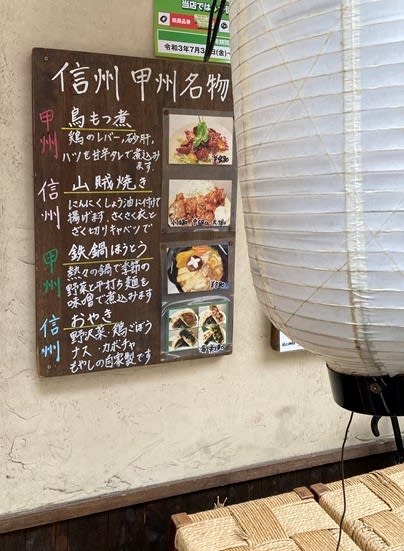 当店では
令和3年7月3日(金)~
信州 甲州名物
甲州
鳥もつ煮
鶏のレバー,砂肝,
ハツを甘辛タレで煮込み
ます
信州
山賊焼き
にんにくしょう油に付けて
揚げます。さくさく衣と
ざく切りキャベツで
甲州
鉄鍋ほうとう
熱々の鍋で季節の
野菜と平打ち麺を
味噌で煮込みます
信州
おやき
野沢菜・鶏ごぼう
ナス・カボチャ
もやしの自家製です